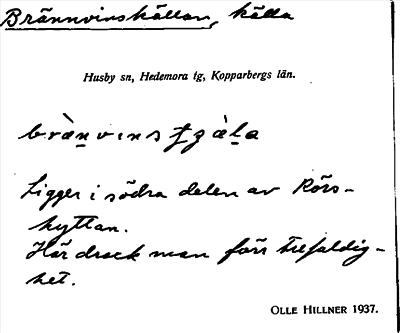 Brännvinskällan, källa
Husby sn, Hedemora tg, Kopparbergs län.
bràn̲vinsʈʐàl̲a
Ligger i södra delen av Rörs-
hyttan.
Här drack man förr trefaldig-
het.
OLLE HILLNER 1937.